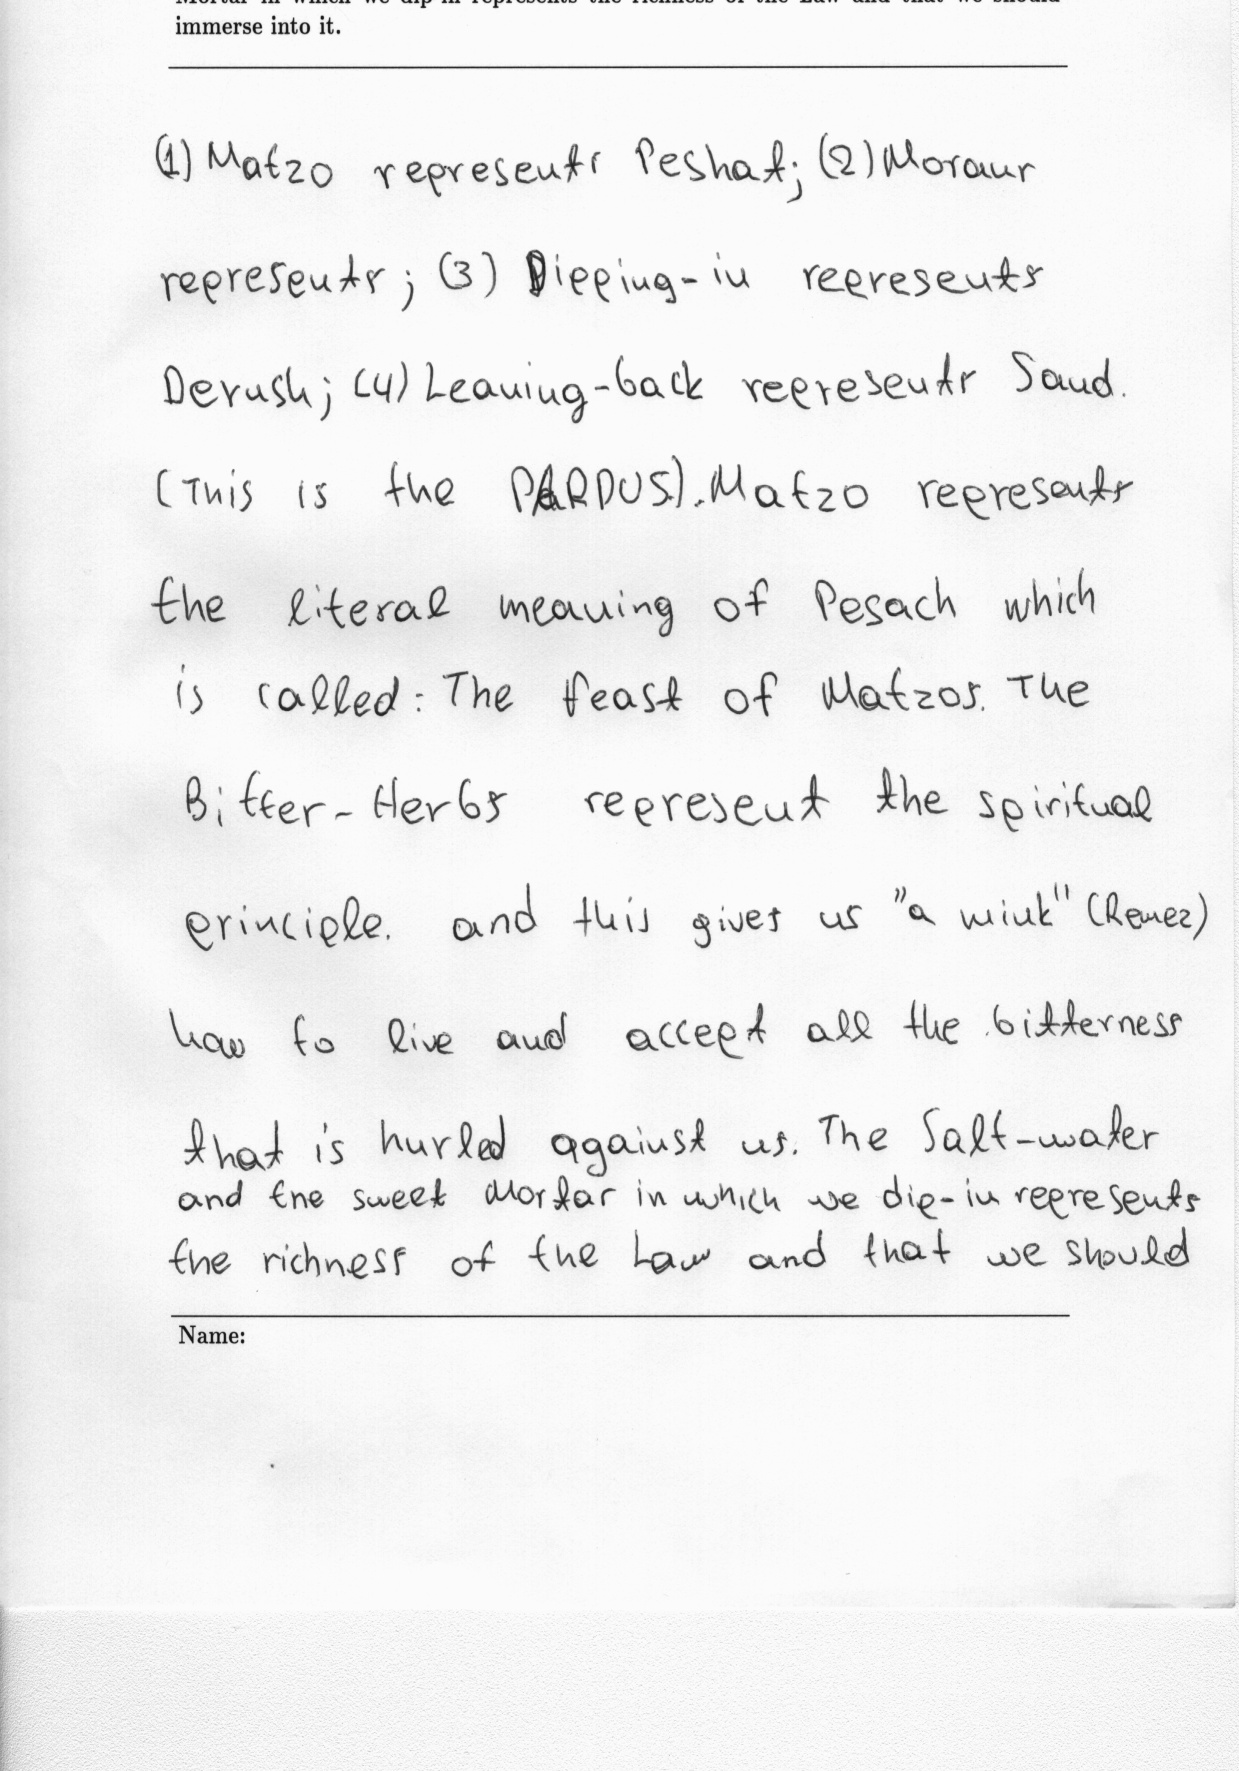 Mortar in which we dip-in represents the richness of the Law and that we should
immerse into it.
(1) Matzo represents Peshat; (2) Moraur
represents; (3) Dipping-in represents
Derush; (4) Leaning-back represents Saud.
(This is the PARDUS). Matzo represents
the literal meaning of Pesach which
is called: The feast of Matzos. The
Bitter-Herbs represent the spiritual
principle. and this gives us "a wink" (Remez)
how to live and accept all the bitterness
that is hurled against us. The Salt-water
and the sweet Mortar in which we dip-in represents
the richness of the Law and that we should
Name: